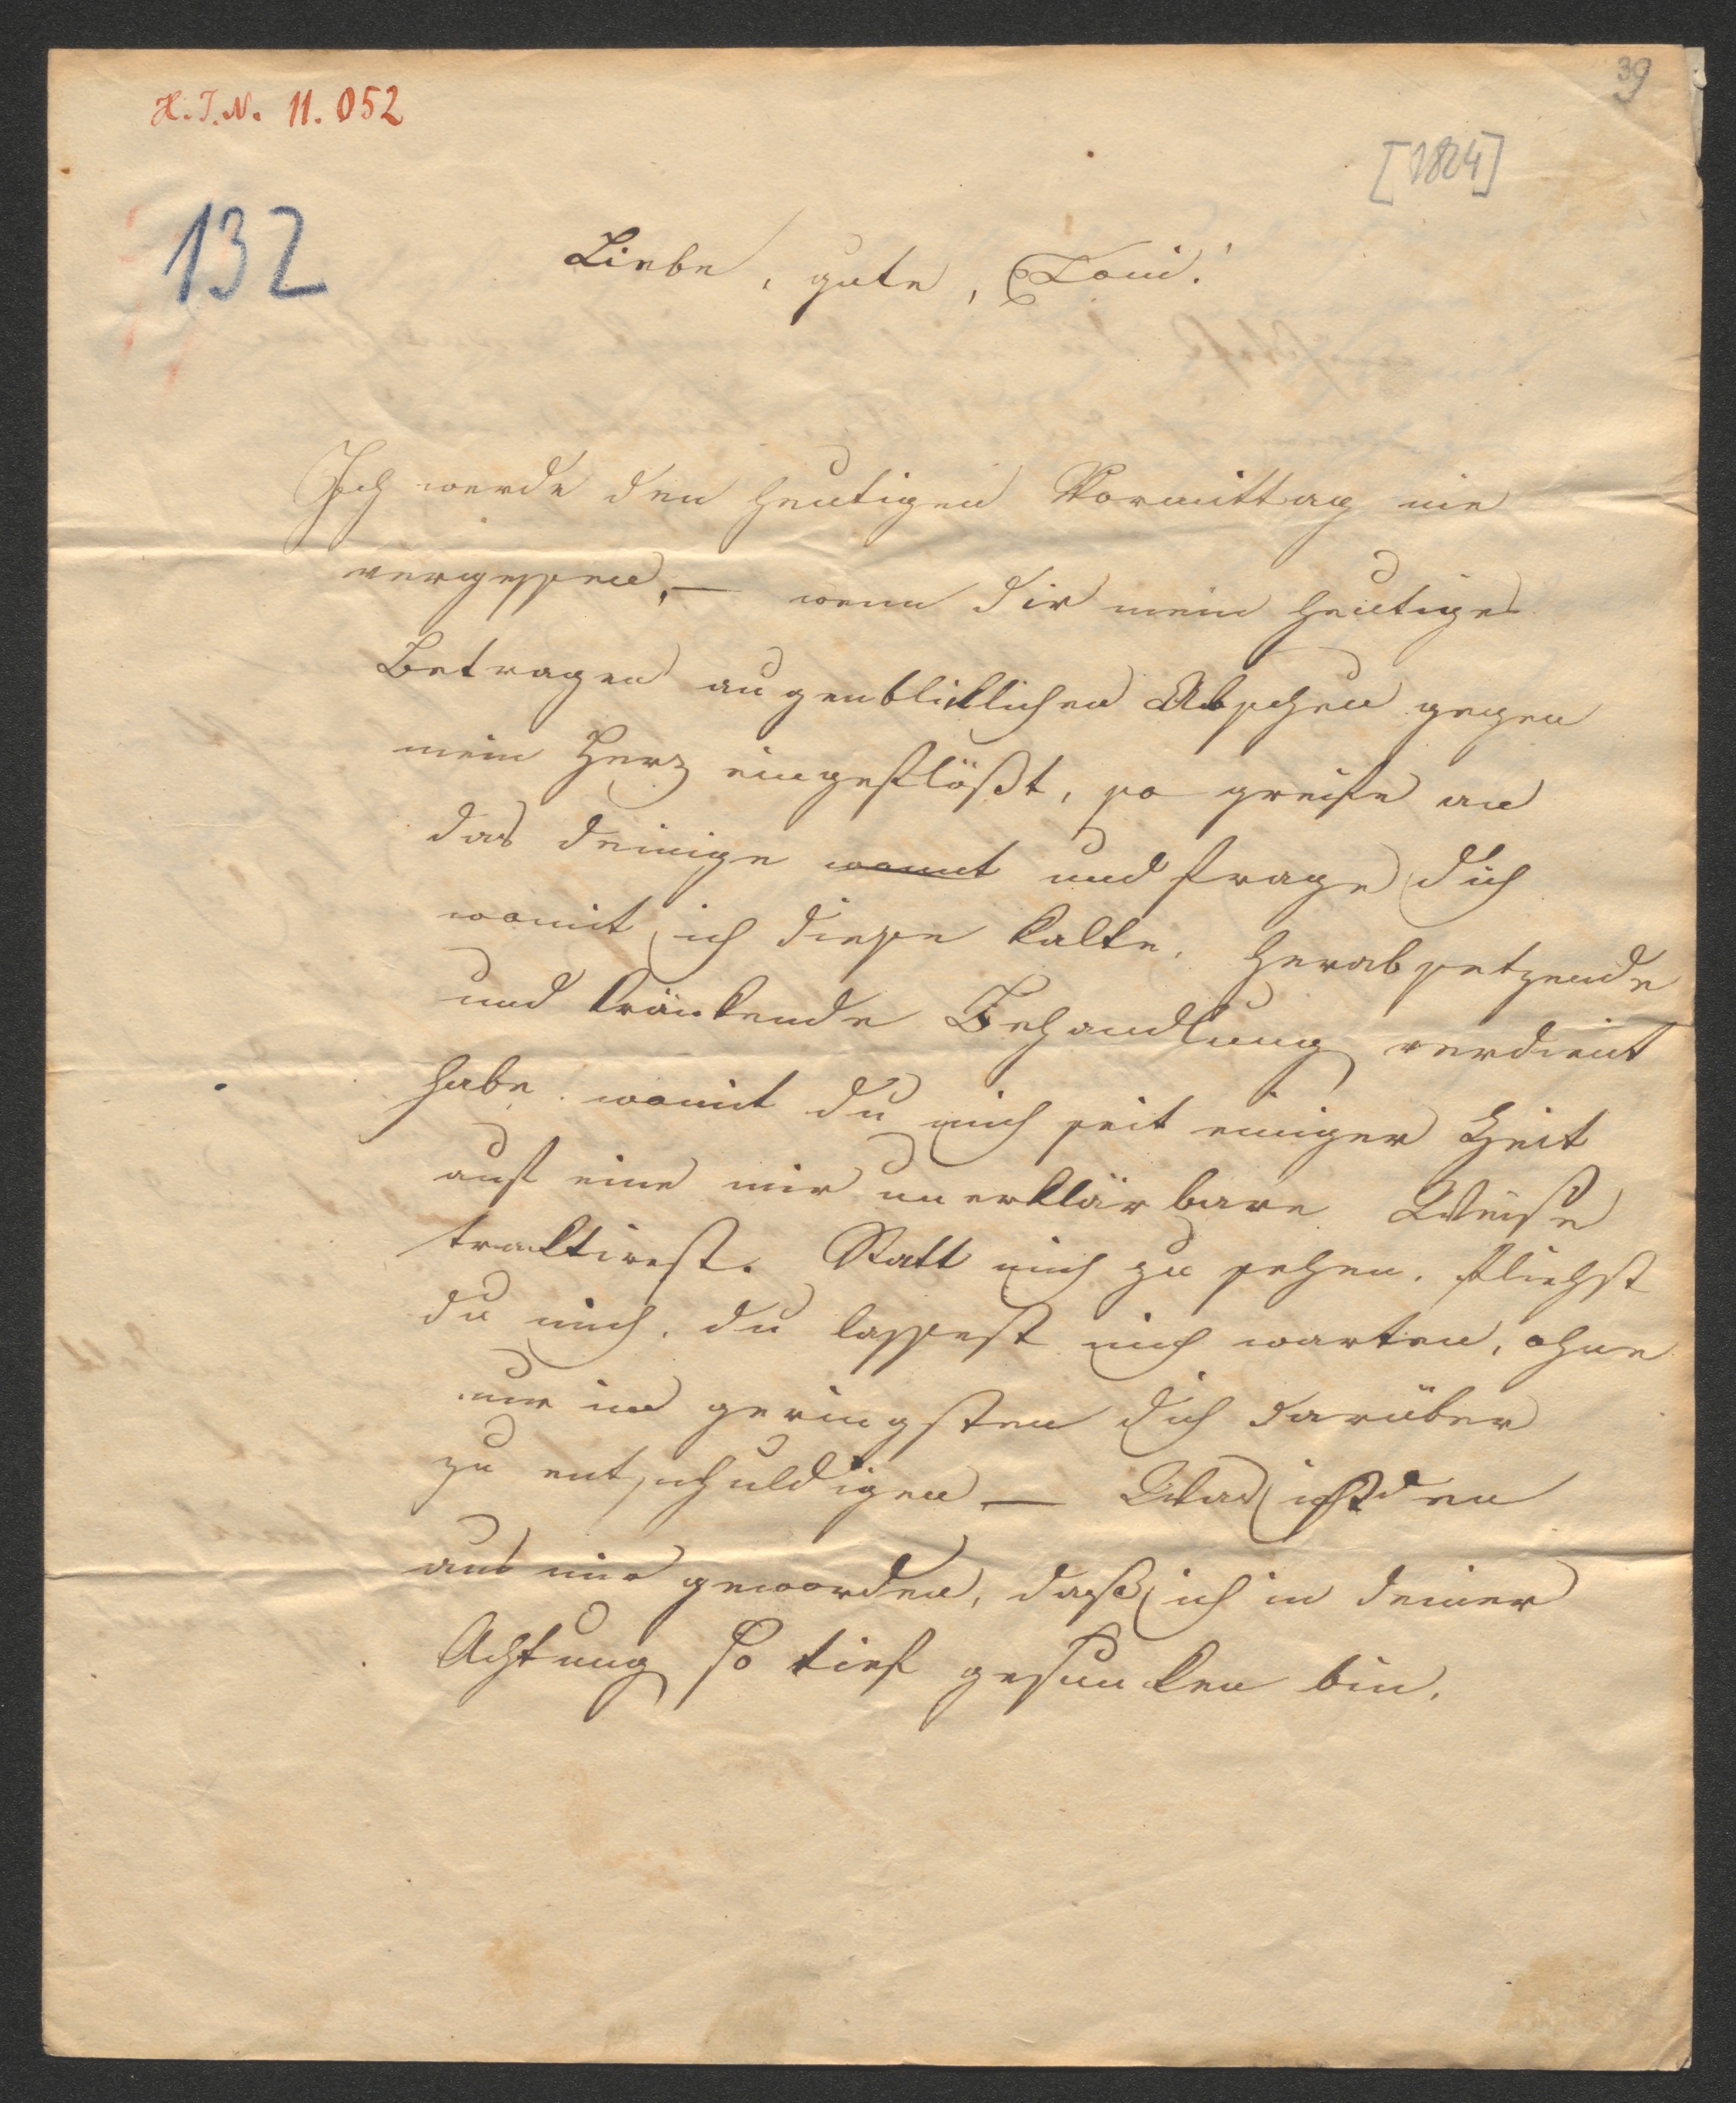 39
H.I.N. 11.052
[1824]
132
Liebe, gute, Toni!
Ich werde den heutigen Vormittag nie
vergessen, — wenn dir mein heutiges
Betragen augenblicklichen Abscheu gegen
mein Herz eingeflößt, so greife an
das deinige womit und frage dich
womit ich diese kalte, herabsetzende
und kränkende Behandlung verdient
habe womit du mich seit einiger Zeit
auf eine mir unerklärbare Weise
traktirest. Statt mich zu sehen, fliehst
du mich, du lassest mich warten, ohne
nur im geringsten dich darüber
zu entschuldigen — Was ist den
aus mir geworden, daß ich in deiner
Achtung so tief gesunken bin.